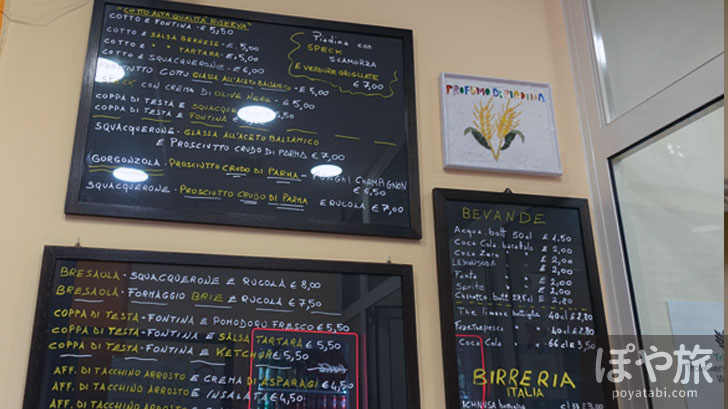 "COTTO ALTA QUALITÀ RISERVA"
COTTO E FONTINA - € 5,50
COTTO E SALSA BERNESE - € 5,00
COTTO E " " TARTARA - € 5,00
COTTO E SQUACQUERONE - € 6,00
PROSCIUTTO COTTO GLASSA ALL'ACETO BALSAMICO - € 5,00
SPECK CON CREMA DI OLIVE NERE - € 5,00
COPPA DI TESTA E SQUACQUERONE
COPPA DI TESTA E FONTINA € 5,00
SQUACQUERONE - GLASSA ALL'ACETO BALSAMICO
E PROSCIUTTO CRUDO DI PARMA € 7,00
GORGONZOLA - PROSCIUTTO CRUDO DI PARMA - FUNGHI CHAMPAGNON
€ 6,50
SQUACQUERONE - PROSCIUTTO CRUDO DI PARMA E RUCOLA € 7,00
Piadina con
SPECK
SCAMORZA
E VERDURE GRIGLIATE
€ 7,00
PROFUMO DI PIADINA
BRESAOLA - SQUACQUERONE E RUCOLA € 8,00
BRESAOLA - FORMAGGIO BRIE E RUCOLA € 7,50
COPPA DI TESTA - FONTINA E POMODORO FRESCO € 5,50
COPPA DI TESTA - FONTINA E SALSA TARTARA € 5,50
COPPA DI TESTA - FONTINA E KETCHUP € 5,50
AFF. DI TACCHINO ARROSTO E CREMA DI ASPARAGI € 4,50
AFF. DI TACCHINO ARROSTO E INSALATA € 4,50
BEVANDE
Acqua bott 50 cl £ 1,50
Coca Cola barattolo £ 2,00
Coca Zero " £ 2,00
LEMONSODA " £ 2,00
Fanta " £ 2,00
Sprite " £ 2,00
£ 2,80
The limone bottiglia 40 cl £ 2,80
40 cl £ 2.80
Coca Cola " 66 cl £ 3,50
BIRRERIA
ITALIA
ICHNUSA bottiglia
ぽや旅
poyatabi.com